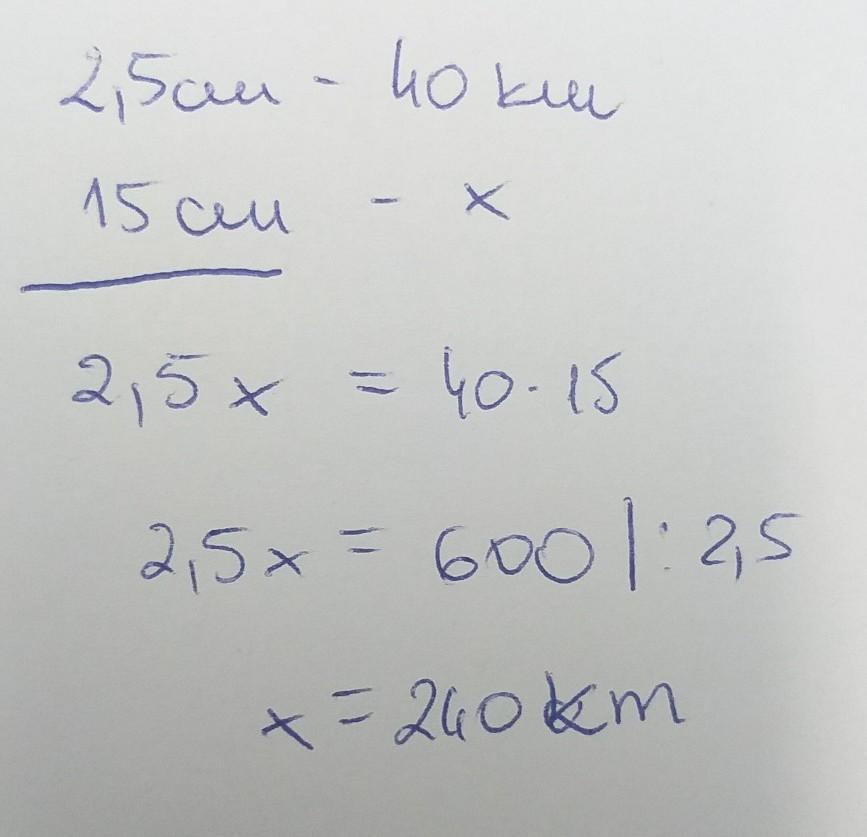 2,5cm - 40 km
15 cm - x
2,5x = 40·15
2,5x = 600 |: 2,5
x = 240 km